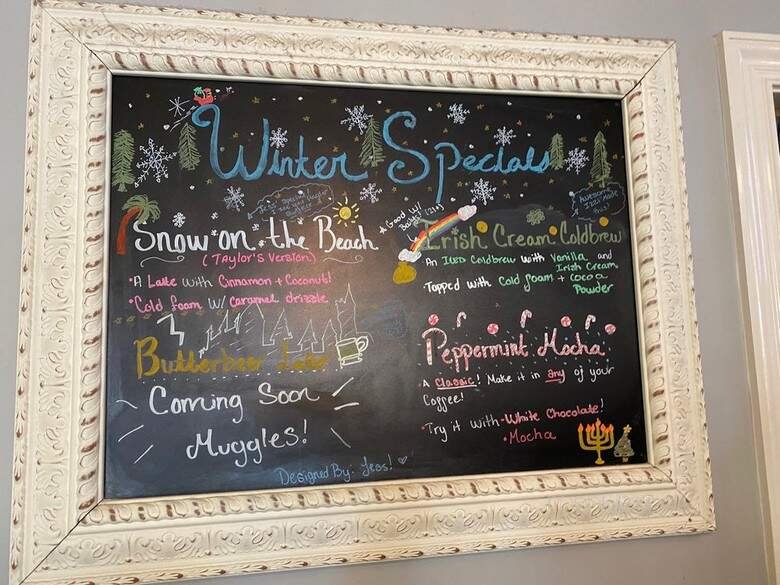 Winter Specials
Snow on the Beach
(Taylor's Version)
•A Latte with Cinnamon + Coconut!
•Cold foam w/ caramel drizzle
+ Good w/
Irish Cream Coldbrew
An Iced Coldbrew with Vanilla and
Irish Cream
Topped with Cold foam + Cocoa
Powder
Butterbeer Latte
Coming Soon
Muggles!
Peppermint Mocha
A Classic! Make it in any of your
Coffee!
•Try it with -White Chocolate!
•Mocha
Designed By: